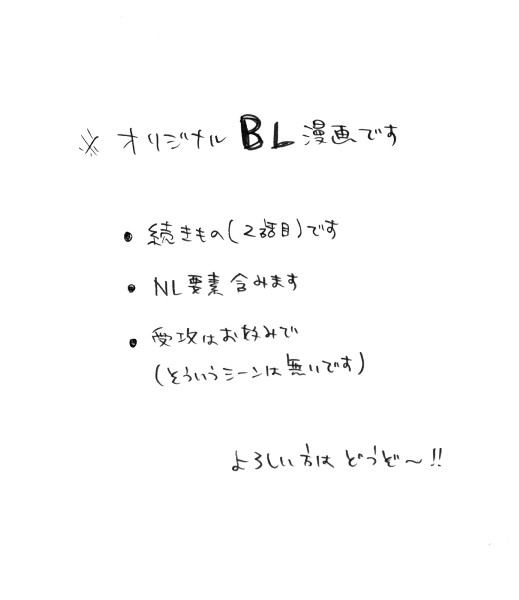 ※ オリジナルBL漫画です
• 続きもの(2話目)です
• NL要素含みます
• 受攻はお好みで
(そういうシーンは無いです)
よろしい方は どうぞ〜!!